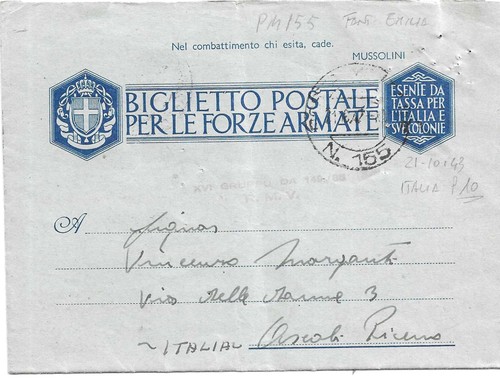 PM 155 Forlì Emilia
Nel combattimento chi esita, cade.
MUSSOLINI
BIGLIETTO POSTALE
PER LE FORZE ARMATE
ESENTE DA
TASSA PER
L'ITALIA E
SUE COLONIE
N. 155
21-10-43
ITALIA P 10
A Signor
Vincenzo Morganti
Via delle Donne 3
ITALIA Ascoli Piceno